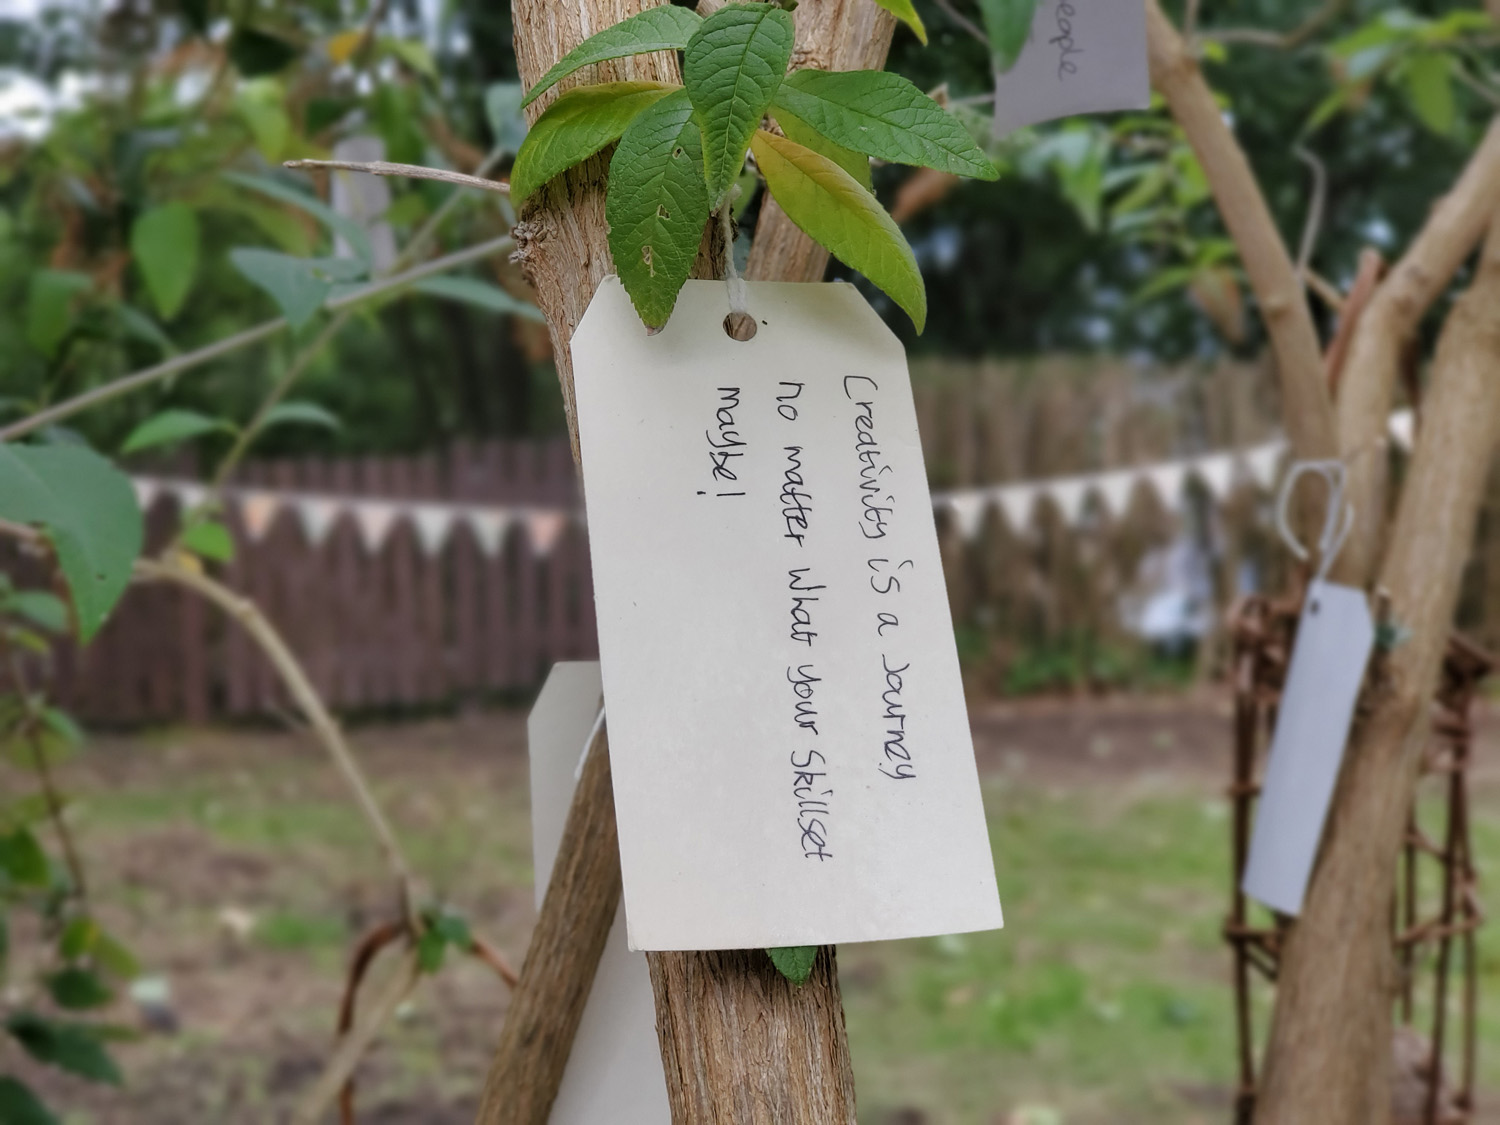 Creativity is a Journey
no matter what your Skillset
maybe!
eople